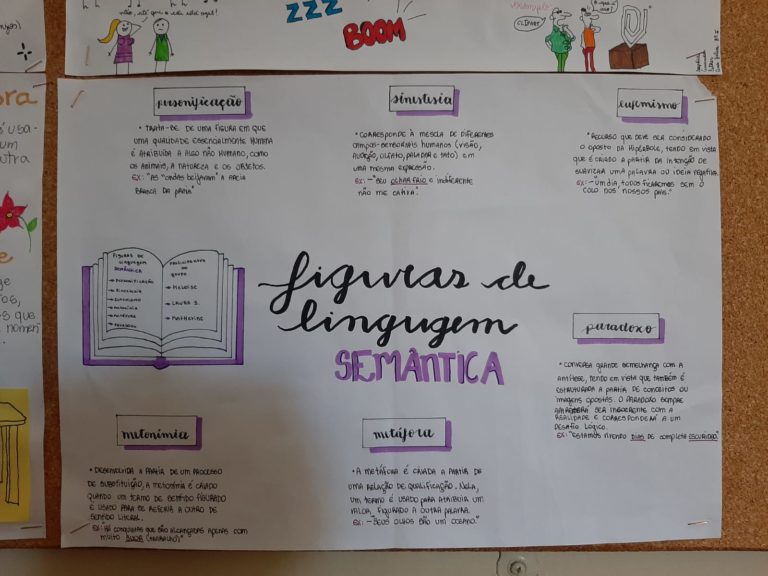 não, até que a vida está legal!
ZZZ
BOOM
CLIPART
ora
é usa-
um
utra
personificação
• TRATA-SE DE UMA FIGURA EM QUE
UMA QUALIDADE ESSENCIALMENTE HUMANA
É ATRIBUÍDA A ALGO NÃO HUMANO, COMO
OS ANIMAIS, A NATUREZA E OS OBJETOS.
EX: "AS "ONDAS BEIJAVAM" A AREIA
BRANCA DA PRAIA"
sinestesia
• CORRESPONDE À MESCLA DE DIFERENTES
CAMPOS SENSORIAIS HUMANOS (VISÃO,
AUDIÇÃO, OLFATO, PALADAR E TATO) EM
UMA MESMA EXPRESSÃO.
EX: -"SEU OLHAR FRIO E INDIFERENTE
NÃO ME CATIVA".
eufemismo
• RECURSO QUE DEVE SER CONSIDERADO
O OPOSTO DA HIPÉRBOLE, TENDO EM VISTA
QUE É CRIADO A PARTIR DA INTENÇÃO DE
SUAVIZAR UMA PALAVRA OU IDEIA NEGATIVA.
EX: -"UM DIA, TODOS FICAREMOS SEM O
COLO DOS NOSSOS PAIS."
FIGURAS DE
LINGUAGEM
SEMÂNTICA
→ PERSONIFICAÇÃO
→ SINESTESIA
→ EUFEMISMO
→ METONÍMIA
→ METÁFORA
→ PARADOXO
PARTICIPANTES DO
GRUPO
→ HELOÍSE
→ LAURA S.
→ KATHERINE
figuras de
lingugem
SEMÂNTICA
paradoxo
• CONVERSA GRANDE SEMELHANÇA COM A
ANTÍTESE, TENDO EM VISTA QUE TAMBÉM É
ESTRUTURADA A PARTIR DE CONCEITOS OU
IMAGENS OPOSTAS. O PARADOXO SEMPRE
SER INCOERENTE COM A
REALIDADE E CORRESPONDERÁ A UM
DESAFIO LÓGICO.
EX: "ESTAMOS VIVENDO DIAS DE COMPLETA ESCURIDÃO."
metonímia
• DESENVOLVIDA A PARTIR DE UM PROCESSO
DE SUBSTITUIÇÃO, A METONÍMIA É CRIADO
QUANDO UM TERMO DE SENTIDO FIGURADO
É USADO PARA SE REFERIR A OUTRO DE
SENTIDO LITERAL.
EX: HÁ CONQUISTAS QUE SÃO ALCANÇADAS APENAS COM
MUITO SUOR (TRABALHO)"
metáfora
• A METÁFORA É CRIADA A PARTIR DE
UMA RELAÇÃO DE QUALIFICAÇÃO. NELA,
UM TERMO É USADO PARA ATRIBUIR UM
VALOR FIGURADO A OUTRA PALAVRA.
EX: -"SEUS OLHOS SÃO UM OCEANO."